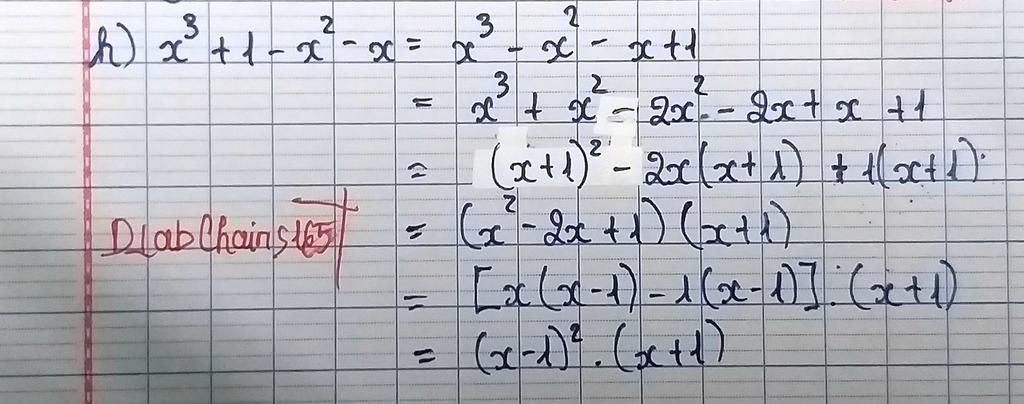 h) x³ + 1 - x² - x = x³ - x² - x + 1
= x³ + x² - 2x² - 2x + x + 1
= (x+1)² - 2x(x+1) + 1(x+1)
DlabChains165
= (x² - 2x + 1) (x+1)
= [x(x-1) - 1(x-1)] . (x+1)
= (x-1)² . (x+1)